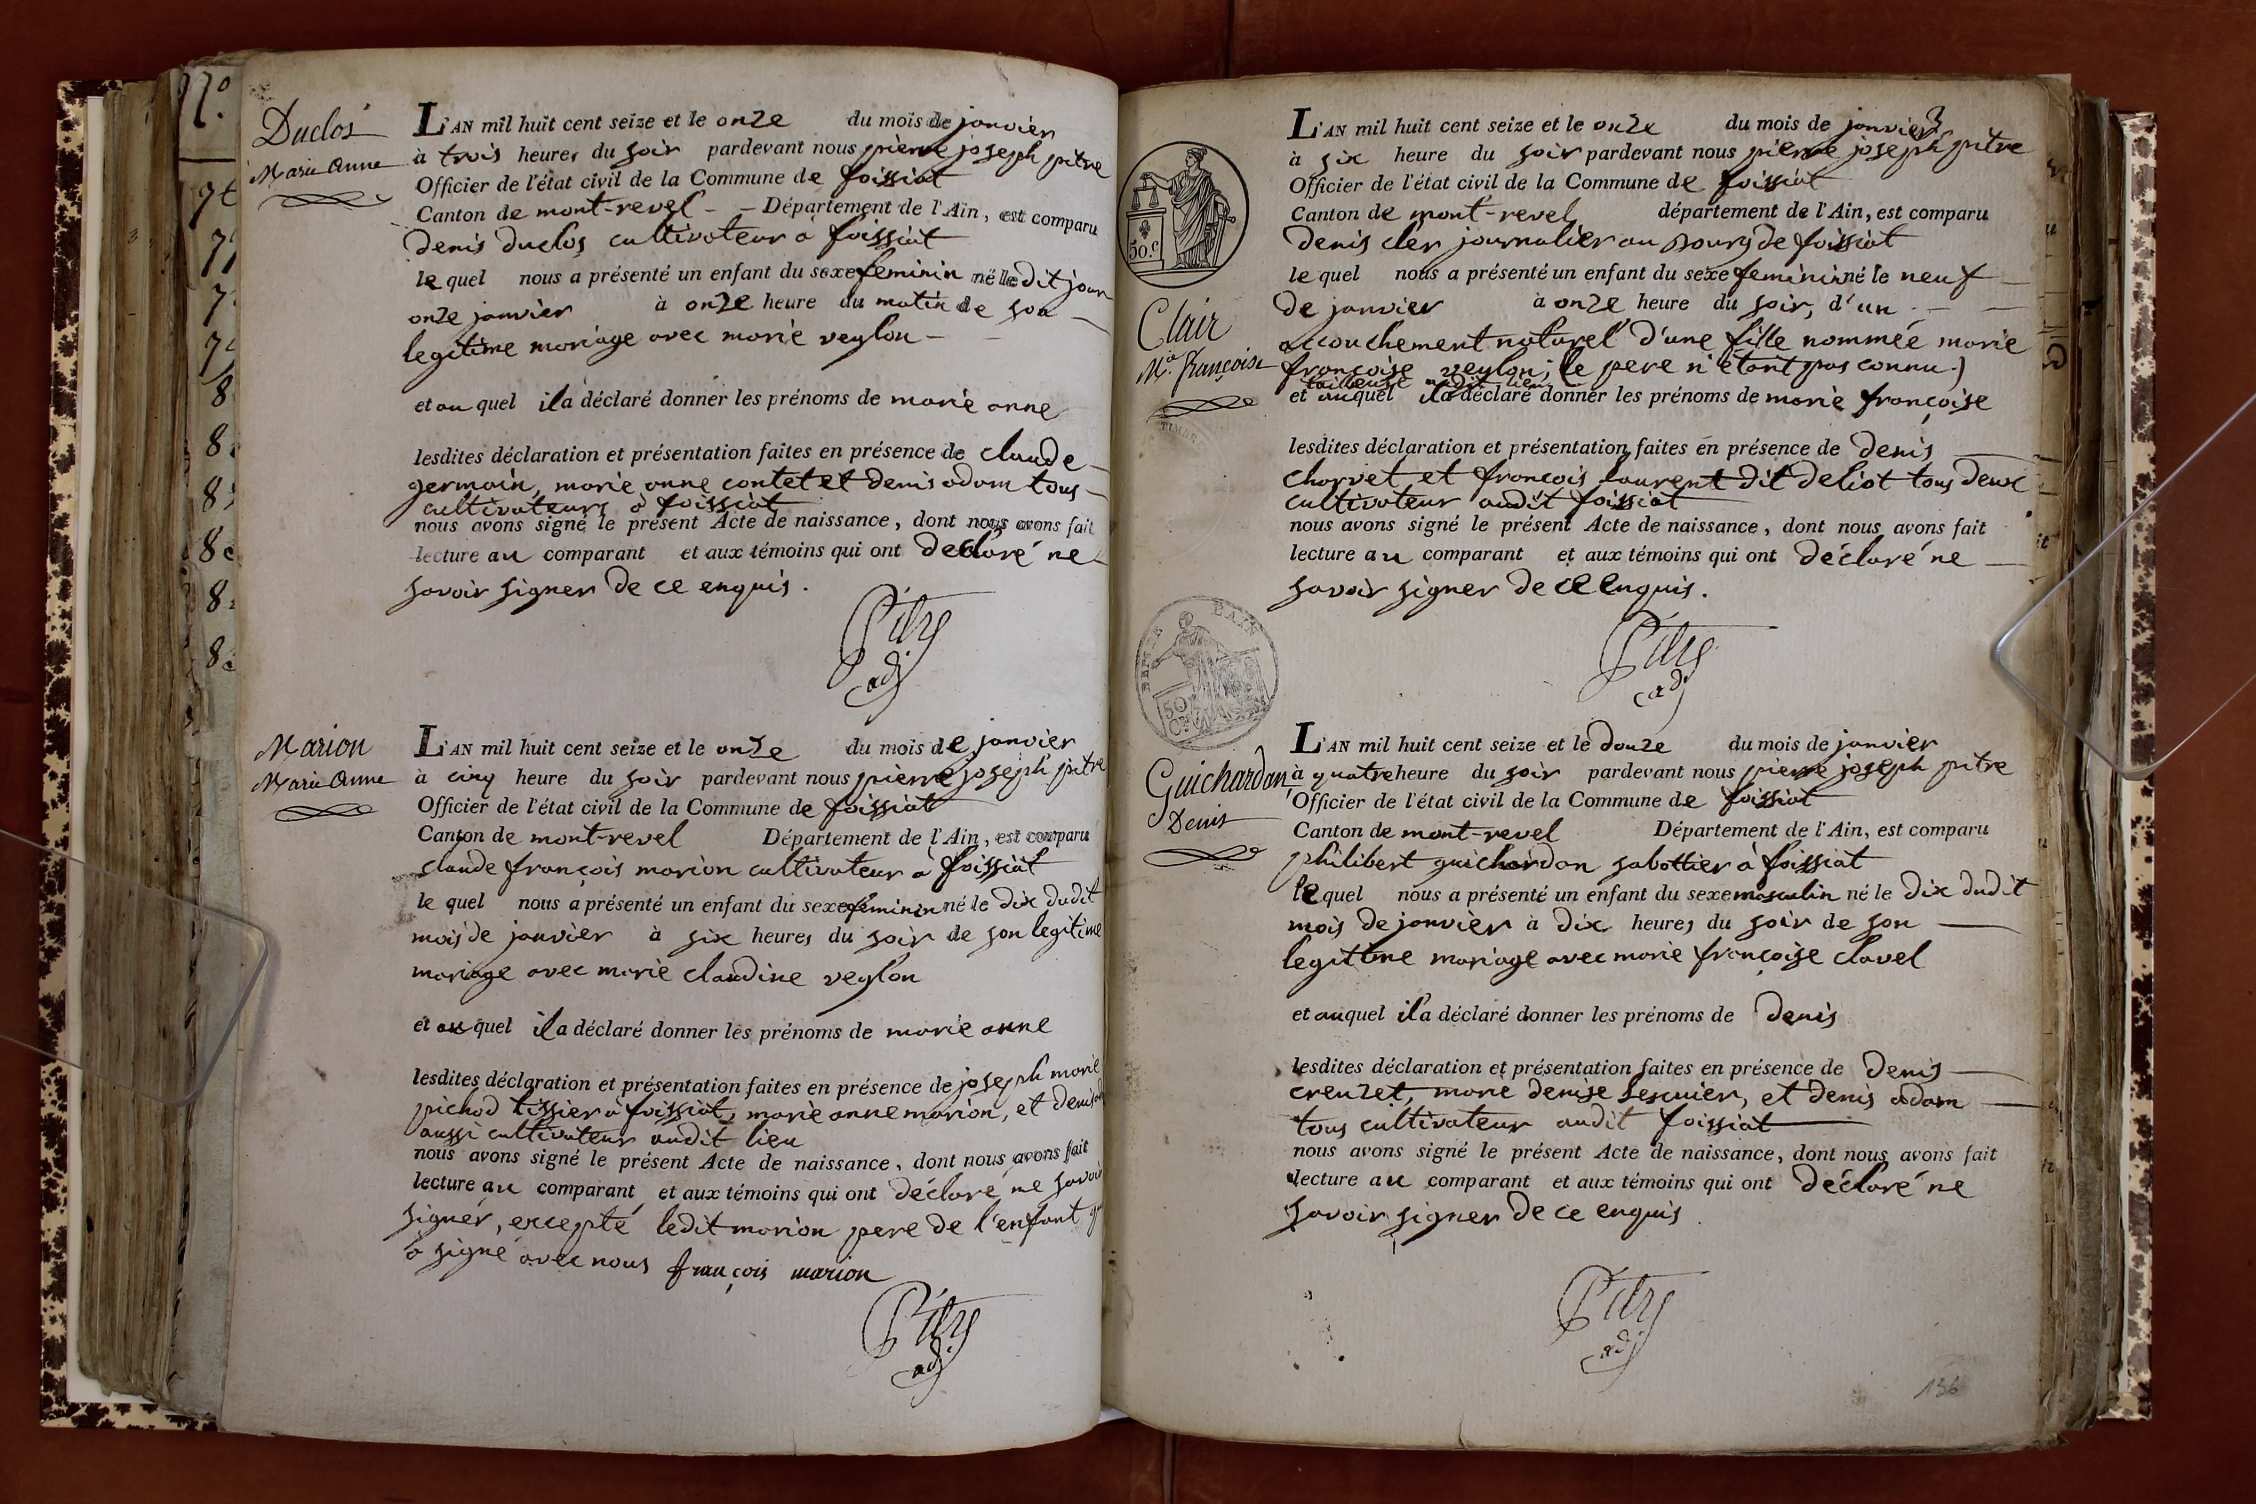 Duclos
Marie Anne
L'AN mil huit cent seize et le onze du mois de janvier
à trois heures du soir pardevant nous pierre joseph pitre
Officier de l'état civil de la Commune de foissiat
Canton de mont-revel - - Département de l'Ain, est comparu
denis duclos cultivateur a foissiat
le quel nous a présenté un enfant du sexe feminin né le dit jour
onze janvier à onze heure du matin de son
legitime mariage avec marie veylon -
et au quel il a déclaré donner les prénoms de marie anne
lesdites déclaration et présentation faites en présence de claude
germain, marie anne contet et denis adam tous
cultivateurs à foissiat
nous avons signé le présent Acte de naissance, dont nous avons fait
lecture au comparant et aux témoins qui ont declaré ne
savoir signer de ce enquis.
Pitre
adj
Marion
Marie Anne
L'AN mil huit cent seize et le onze du mois de janvier
à cinq heure du soir pardevant nous pierre joseph pitre
Officier de l'état civil de la Commune de foissiat
Canton de mont-revel Département de l'Ain, est comparu
claude françois marion cultivateur a foissiat
le quel nous a présenté un enfant du sexe féminin né le dix dudit
mois de janvier à six heures du soir de son legitime
mariage avec marie claudine veylon
et au quel il a déclaré donner les prénoms de marie anne
lesdites déclaration et présentation faites en présence de joseph marie
pichod tissier a foissiat, marie anne marion, et denis
aussi cultivateur audit lieu
nous avons signé le présent Acte de naissance, dont nous avons fait
lecture au comparant et aux témoins qui ont déclaré ne savoir
signer, excepté ledit marion pere de l'enfant
a signé avec nous françois marion
Pitre
adj
3
50.c
Clair
M.ie françoise
TIMBRE
L'AN mil huit cent seize et le onze du mois de janvier
à six heure du soir pardevant nous pierre joseph pitre
Officier de l'état civil de la Commune de foissiat
Canton de mont-revel département de l'Ain, est comparu
denis cler journalier au bourg de foissiat
le quel nous a présenté un enfant du sexe feminin né le neuf
de janvier à onze heure du soir, d'un
accouchement naturel d'une fille nommée marie
françoise veylon; le pere n'étant pas connu.)
tailleuse audit lieu
et auquel il a déclaré donner les prénoms de marie françoise
lesdites déclaration et présentation faites en présence de denis
charvet et françois laurent dit deliot tous deux
cultivateur audit foissiat
nous avons signé le présent Acte de naissance, dont nous avons fait
lecture au comparant et aux témoins qui ont déclaré ne
savoir signer de ce enquis.
Pitre
adj
Guichardan
Denis
L'AN mil huit cent seize et le douze du mois de janvier
à quatre heure du soir pardevant nous pierre joseph pitre
Officier de l'état civil de la Commune de foissiat
Canton de mont-revel Département de l'Ain, est comparu
philibert guichardan sabottier à foissiat
le quel nous a présenté un enfant du sexe masculin né le dix dudit
mois de janvier à dix heures du soir de son
legitime mariage avec marie françoise clavel
et auquel il a déclaré donner les prénoms de denis
lesdites déclaration et présentation faites en présence de denis
creuzet, marie denise lescuier, et denis adam
tous cultivateur audit foissiat
nous avons signé le présent Acte de naissance, dont nous avons fait
lecture au comparant et aux témoins qui ont déclaré ne
savoir signer de ce enquis
Pitre
adj
136